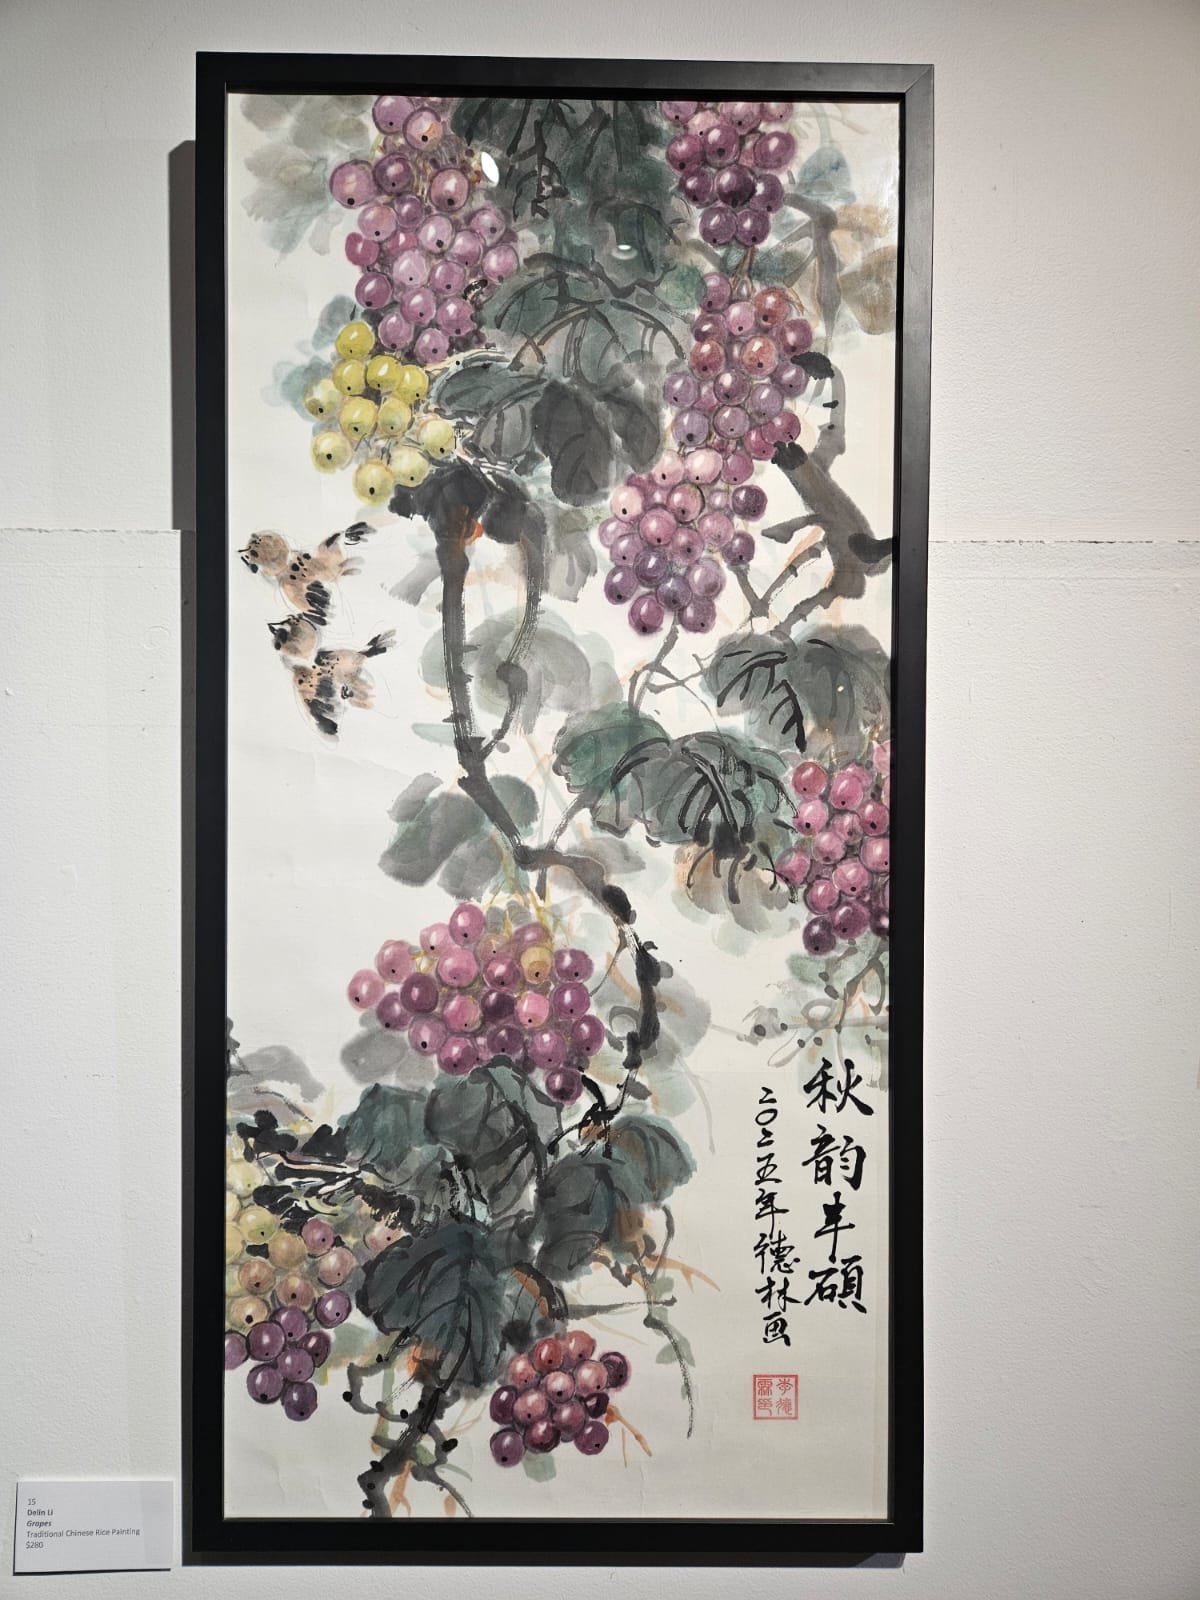 秋韵丰硕
二〇二五年德林画
李德
霖印
15
Delin Li
Grapes
Traditional Chinese Rice Painting
$280